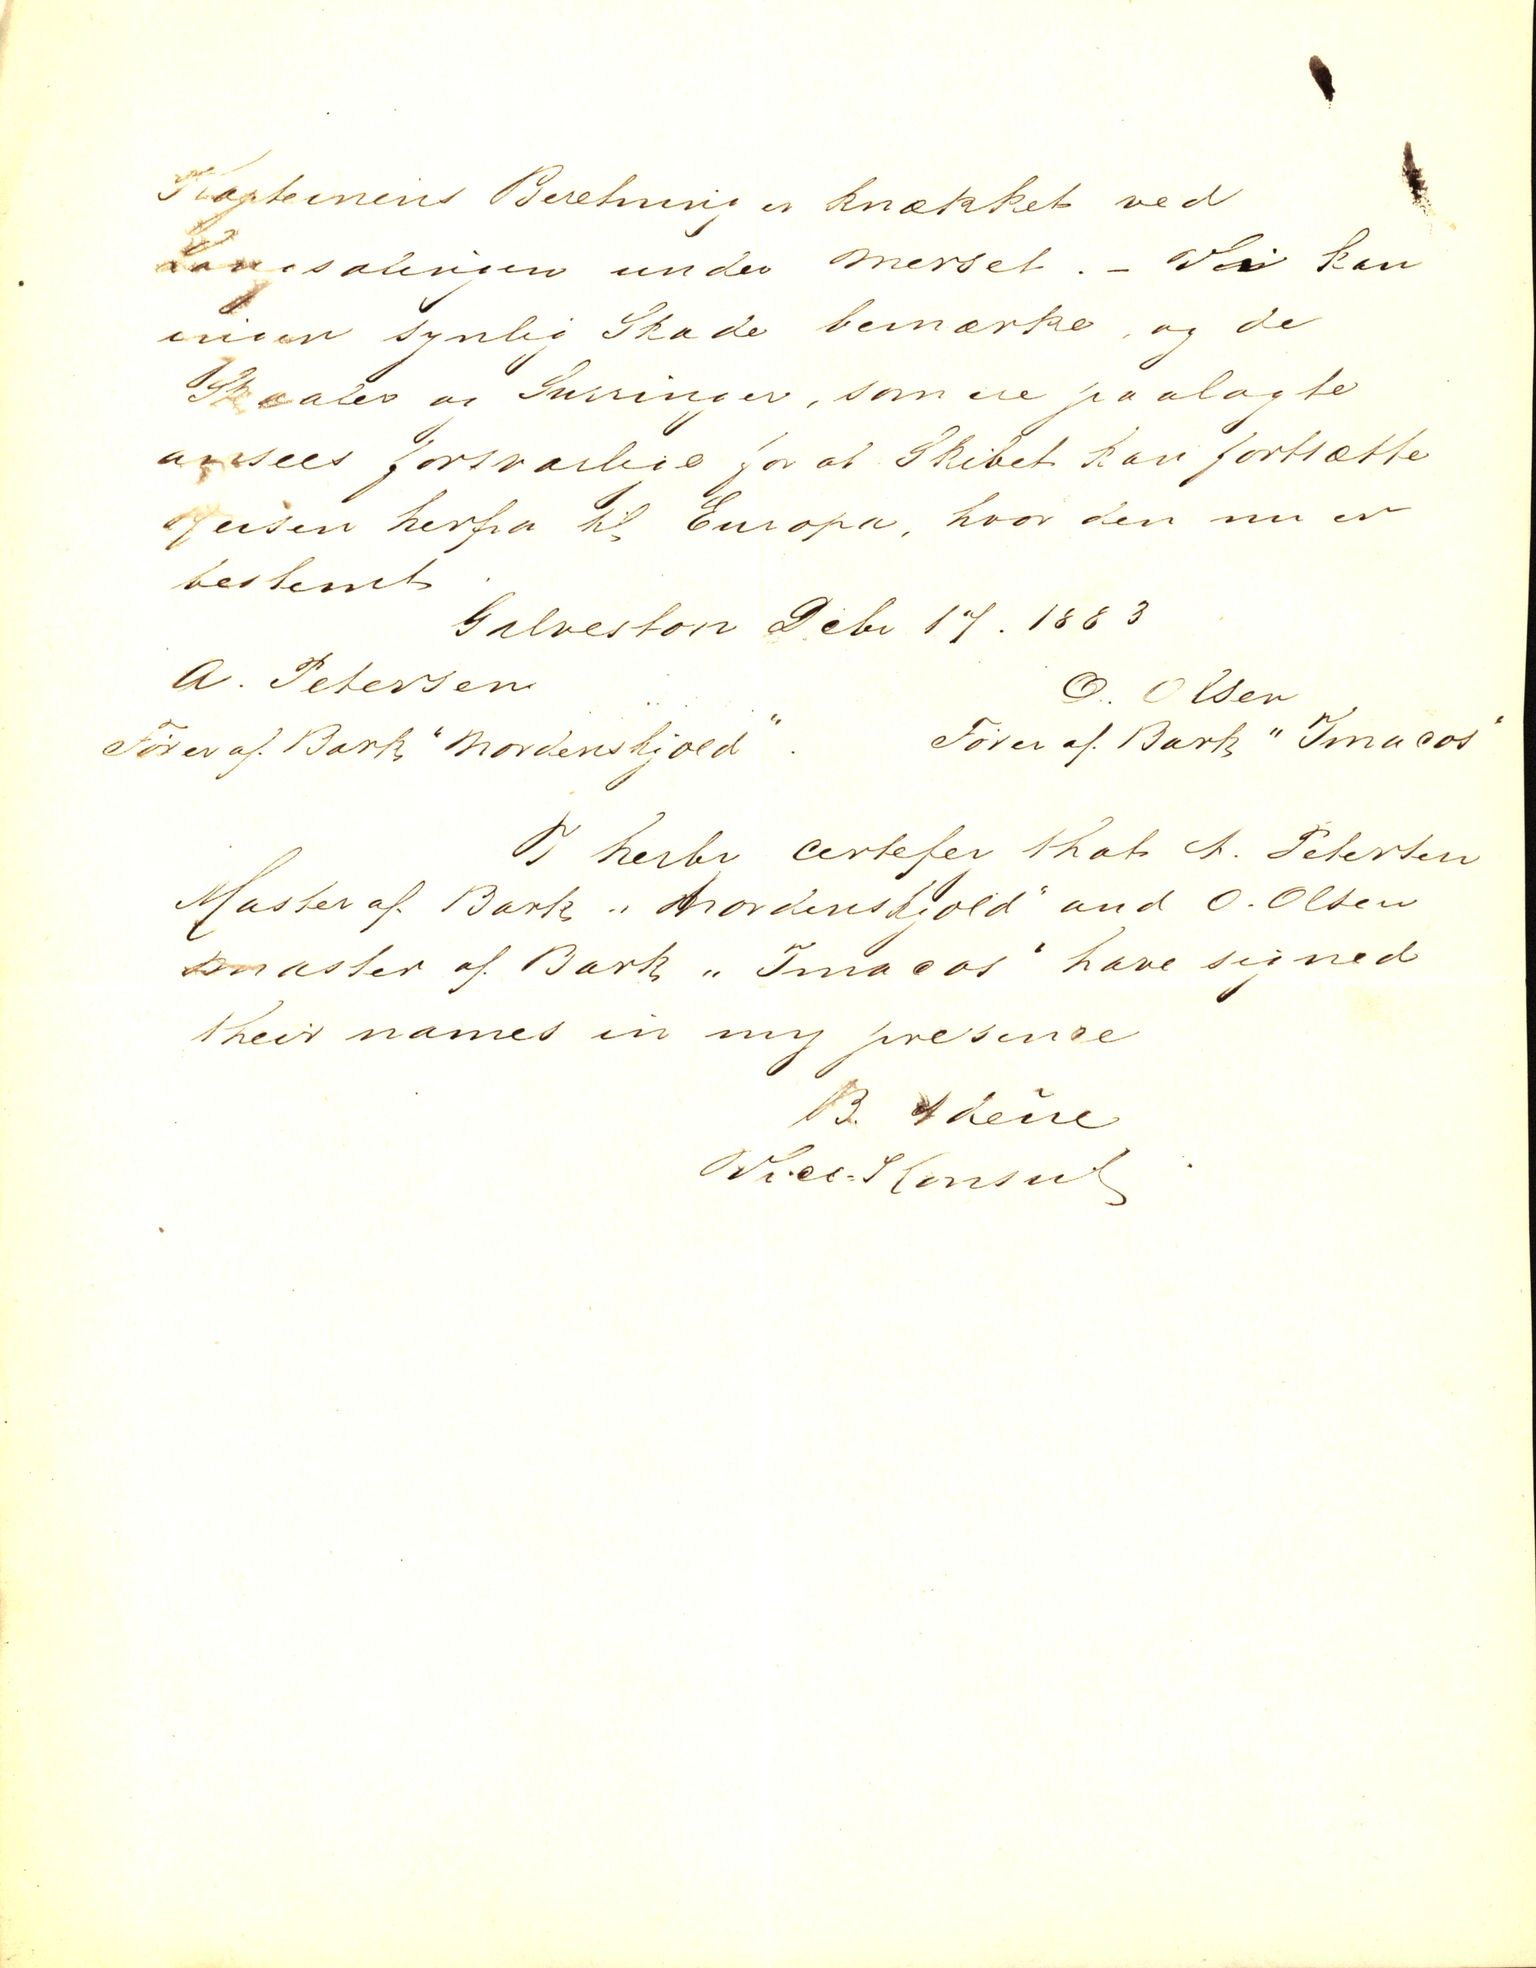 Kapteinens Beretning er knækket ved
Langsalingen under Merset. – Vei kan
ingen synlig Skade bemærke, og de
Skaaler og Surringer, som ere paalagte
ansees forsvarlige for at Skibet kan fortsætte
Reisen herfra til Europa, hvor den nu er
bestemt.
Galveston Debr 17. 1883
A. Petersen O. Olsen
Fører af. Bark "Nordenskjold". Fører af. Bark "Imacos"
I herby certefey that A. Petersen
Master af. Bark „Nordenskjold" and O. Olsen
master af. Bark „Imacos" have signed
their names in my presence
B. Adoue
Vice-Konsul